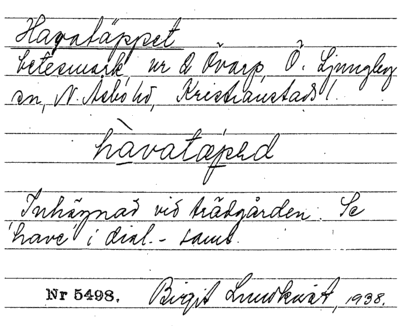 Havatäppet
betesmark, nr 2 Övarp, Ö. Ljungby
sn, N. Åsbo hd, Kristianstads l.
hàvatäped
Inhägnad vid trädgården. Se
'have' i dial.-saml.
Nr 5498. Birgit Lundkvist, 1938.